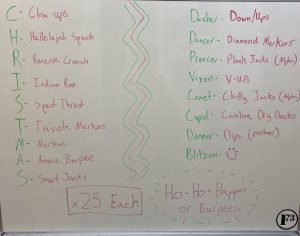 C- Chin-ups
H- Hallelujah Squats
R- Reverse Crunch
I- Indian Run
S- Squat Thrust
T- Travolta Merkins
M- Merkins
A- Aussie Burpee
S- Smurf Jacks
x 25 Each
Dasher- Down/Ups
Dancer- Diamond Merkins
Prancer- Plank Jacks
Vixen- V-ups
Comet- Chilly Jacks
Cupid- Carolina Dry Docks
Donner- Dips (partner)
Blitzen-
Ho-Ho-Happen
or Burpees
F3